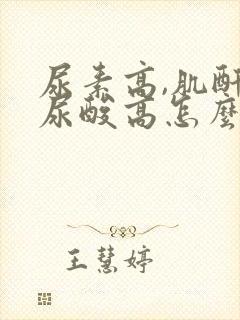 尿素高,肌酐
尿酸高怎麼
王慧婷